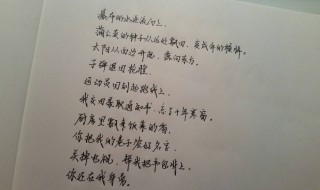 瀑布的水逆流而上，
蒲公英的种子从远处飘回，聚成伞的模样，
太阳从西边升起，落向东方。
子弹退回枪膛，
运动员回到起跑线上，
我交回录取通知书，忘了十年寒窗。
厨房里飘来饭菜的香，
你把我的卷子签好名字，
关掉电视，帮我把书包背上。
你还在我身旁。